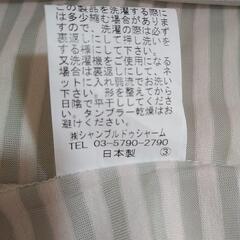 この製品を洗濯する際に
は多少縮む場合があり
ますので、洗濯の際は必ず
裏返しにして押し洗いを
する様にして下さい。
又洗濯機をご使用になる
場合は裏返しにして、ネ
ットに入れ弱流でお洗い
下さい。形を整えてから
日陰で平干ししてくださ
い。タンブラー乾燥は
しないでください。
㈱シャンブルドゥシャーム
TEL 03-5790-2790
日本製 ③